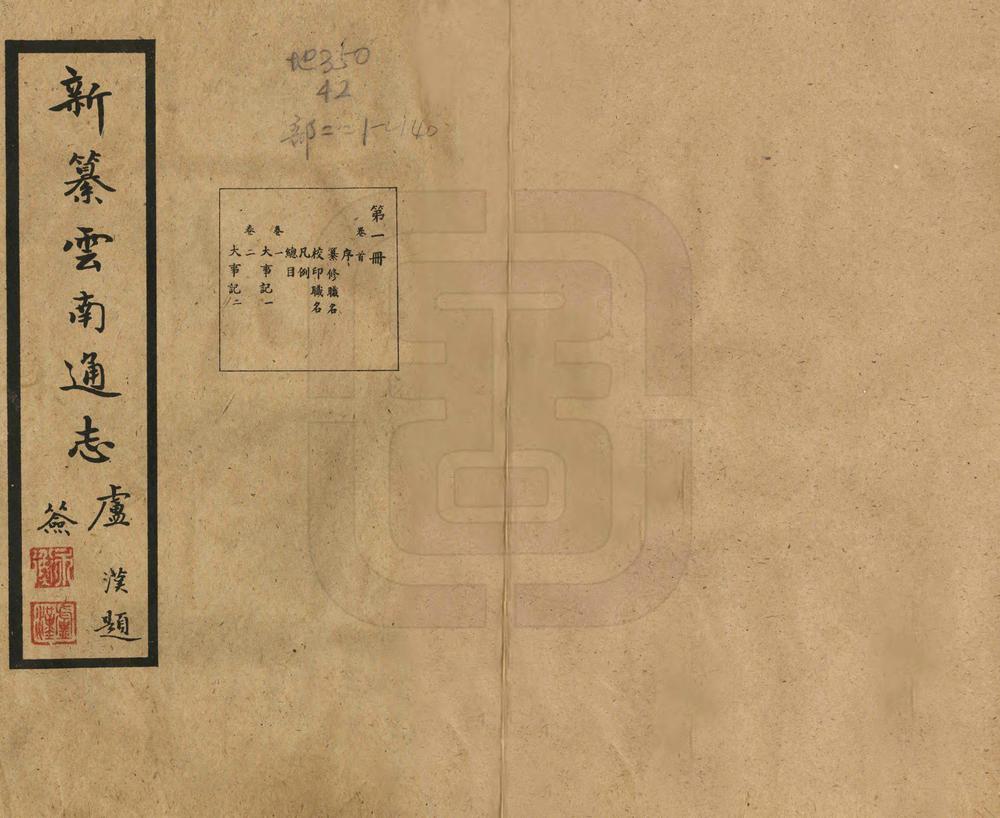 新纂雲南通志
盧漢題
簽
地350
42
部二:1-140
第一冊
卷首
序
纂修職名
校印職名
凡例
總目
卷一
大事記一
卷二
大事記二